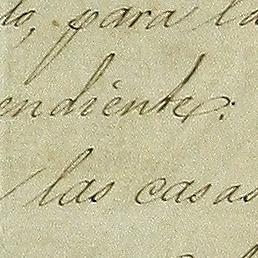 do, para la
endiente:
las casas